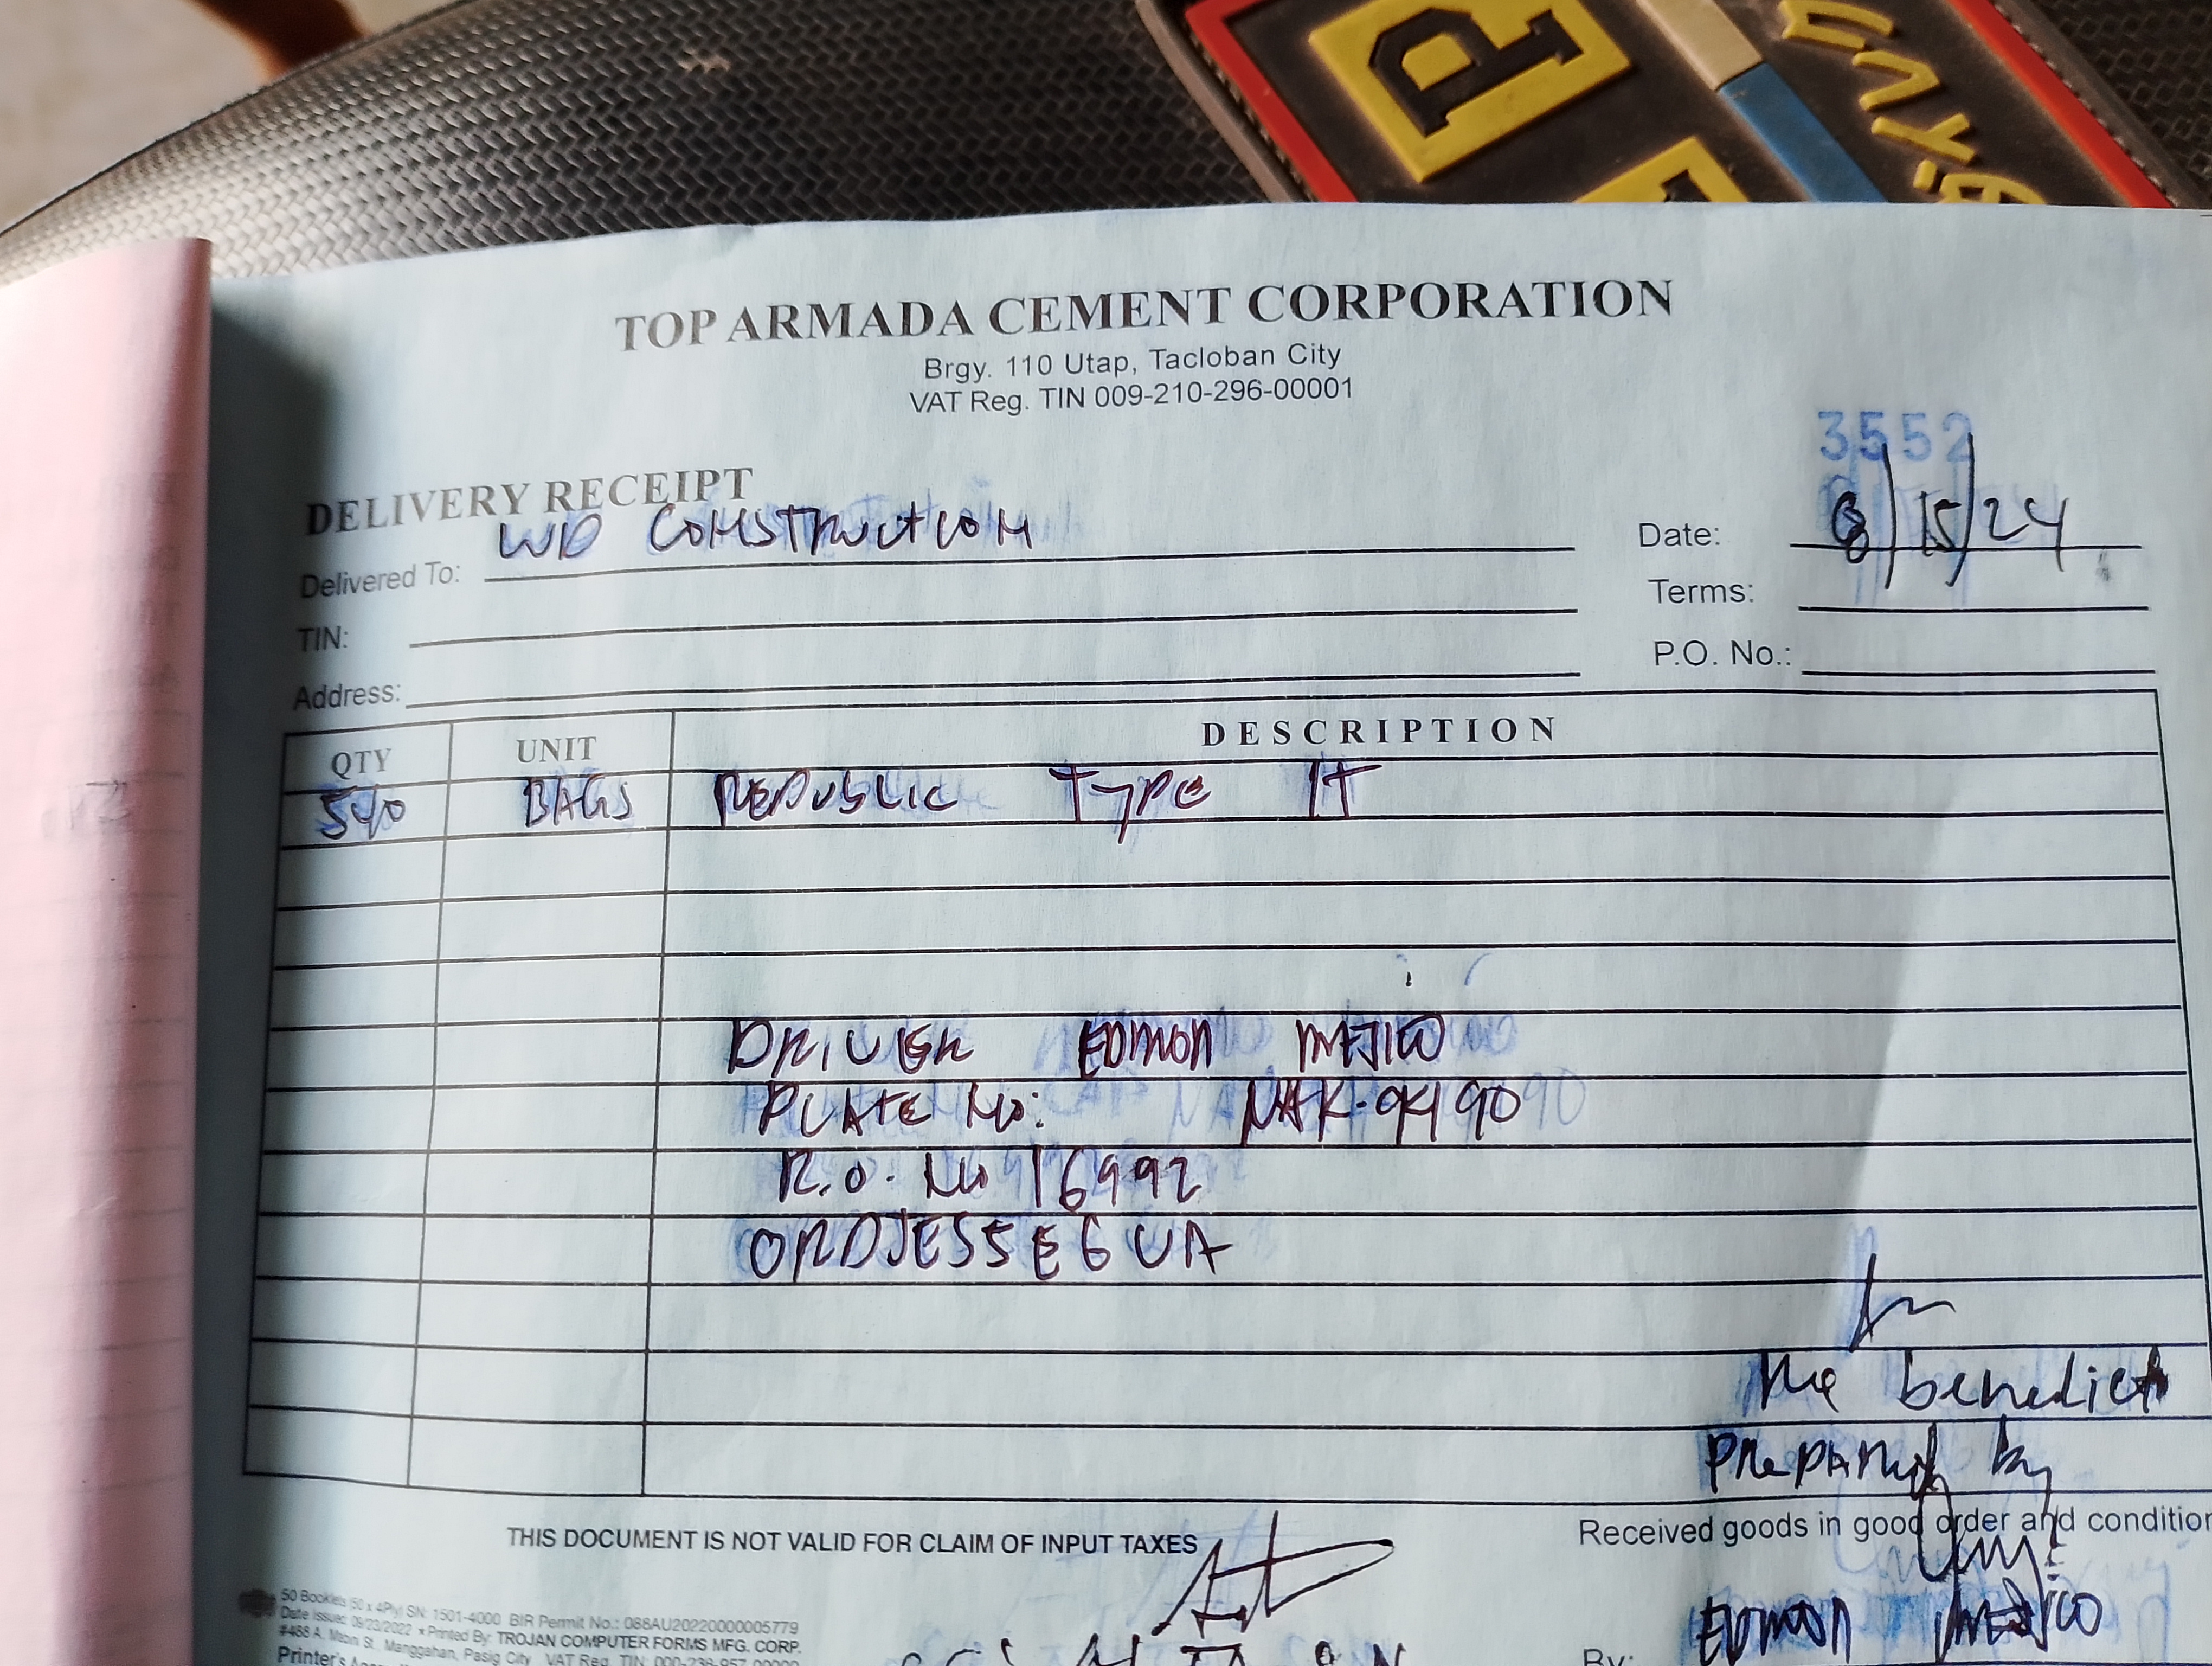 P
TOP ARMADA CEMENT CORPORATION
Brgy. 110 Utap, Tacloban City
VAT Reg. TIN 009-210-296-00001
3552
DELIVERY RECEIPT
Delivered To: WD CONSTRUCTION
Date: 8/15/24
TIN:
Terms:
Address:
P.O. No.:
QTY UNIT DESCRIPTION
540 BAGS REPUBLIC TYPE 1T
DRIVER EDMON MEJICO
PLATE No: NAK-9490
R.O. No 16992
ORDJESSEGUA
benedict
Prepared by
THIS DOCUMENT IS NOT VALID FOR CLAIM OF INPUT TAXES
Received goods in good order and condition
50 Booklets (50 x 4Ply) SN: 1501-4000 BIR Permit No.: 088AU20220000005779
Date Issued: 09/23/2022 * Printed By: TROJAN COMPUTER FORMS MFG. CORP.
#488 A. Mabini St. Manggahan, Pasig City VAT Reg. TIN: 000-238-957-00000
Printer's
By: EDMON MEJICO